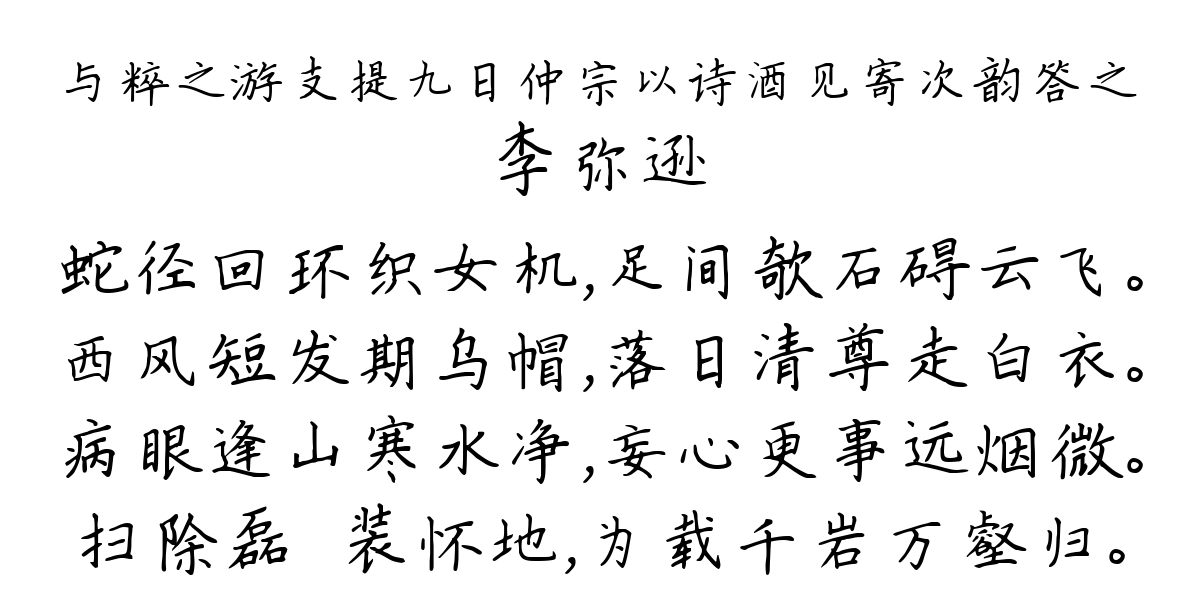 与粹之游支提九日仲宗以诗酒见寄次韵答之
李弥逊
蛇径回环织女机,足间欹石碍云飞。
西风短发期乌帽,落日清尊走白衣。
病眼逢山寒水净,妄心更事远烟微。
扫除磊 装怀地,为载千岩万壑归。